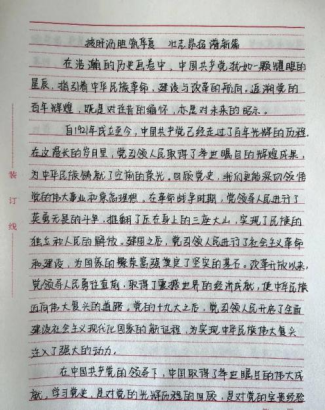 披肝沥胆氤华夏 壮志昂扬谱新篇
在浩瀚的历史画卷中，中国共产党犹如一颗璀璨的
星辰，指引着中华民族革命、建设与改革的航向。追溯党的
百年辉煌，既是对过往的缅怀，亦是对未来的昭示。
自1921年成立至今，中国共产党已经走过了百年光辉的历程。
在这漫长的岁月里，党引领人民取得了举世瞩目的辉煌成果，
为中华民族铸就了空前的荣光。回顾党史，我们更能深切领悟
党的伟大事业和崇高理想。在革命战争时期，党领导人民进行了
英勇无畏的斗争，推翻了压在身上的三座大山，实现了民族的
独立和人民的解放。建国之后，党引领人民进行了社会主义革命
和建设，为国家的繁荣富强奠定了坚实的基石。改革开放以来，
党领导人民勇往直前，取得了震撼世界的经济成就，使中华民族
迈向伟大复兴的道路。党的十九大之后，党引领人民开启了全面
建设社会主义现代化国家的新征程，为实现中华民族伟大复兴
注入了强大的动力。
在中国共产党的领导下，中国取得了举世瞩目的伟大成
就。学习党史，是对党的光辉历程的回顾，是对党的宝贵经验
装
订
线